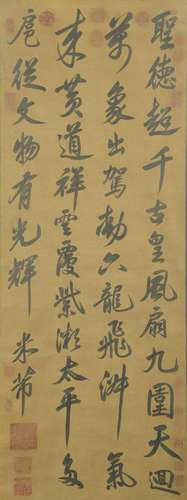 聖德超千古皇風扇九圍天迴
萬象出駕動六龍飛淑氣
來黃道祥雲覆紫微太平多
扈從文物有光輝 米芾